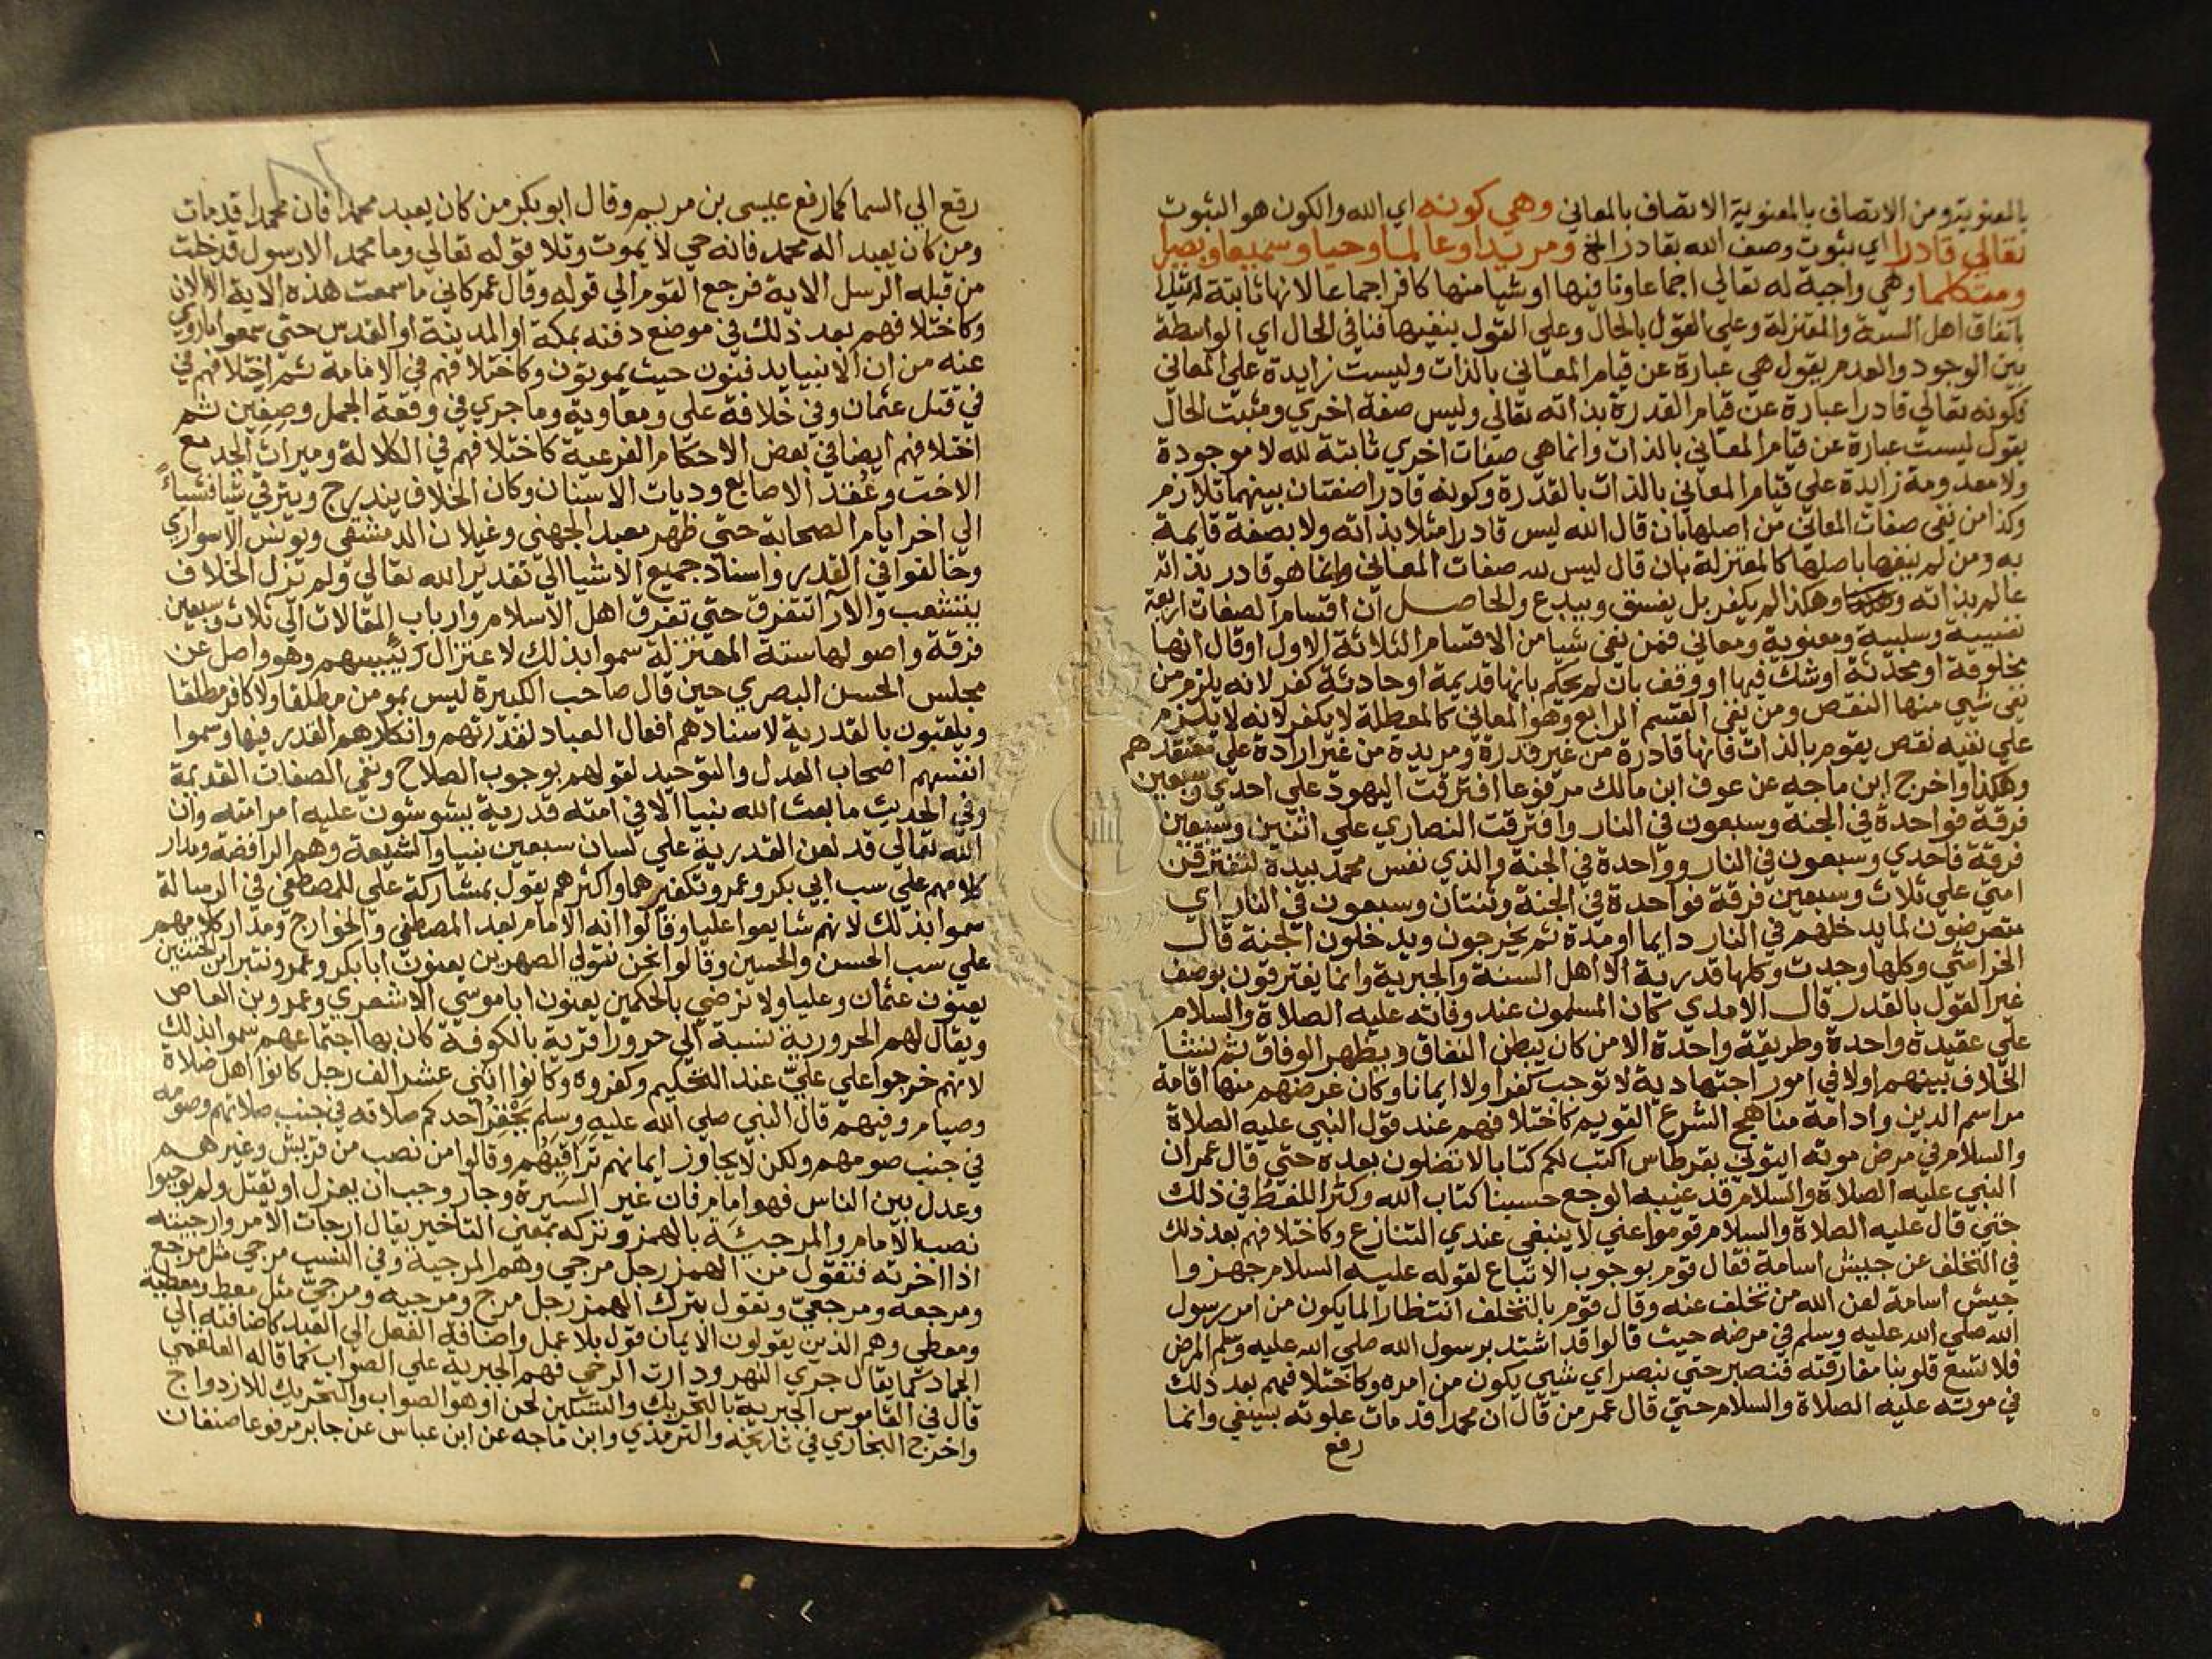 بالمعنوية ومن الاتصاف بالمعنوية الاتصاف بالمعاني وهي كونه اي الله والكون هو الثبوت
تعالي قادرا اي ثبوت وصف الله بقادر الخ ومريدا وعالما وحيا وسميعا وبصيرا
ومتكلما وهي واجبة له تعالي اجماعا ونافيها او شيا منها كافر اجماعا لانها ثابتة
باتفاق اهل السنة والمعتزلة وعلي القول بالحال وعلي القول بنفيها فنافي الحال اي الواسطة
بين الوجود والعدم يقول هي عبارة عن قيام المعاني بالذات وليست زايدة علي المعاني
فكونه تعالي قادرا عبارة عن قيام القدرة بذاته تعالي وليس صفة اخري ومثبت الحال
يقول ليست عبارة عن قيام المعاني بالذات وانما هي صفات اخري ثابتة لله لا موجودة
ولا معدومة زايدة علي قيام المعاني بالذات بالقدرة وكونه قادرا صفتان بينهما تلازم
وكذا من نفي صفات المعاني من اصلها بان قال الله ليس قادرا مثلا بذاته ولا بصفة قايمة
به ومن لم ينفها باصلها كالمعتزلة بان قال ليس لله صفات المعاني وانما هو قادر بذاته
عالم بذاته وهكذا لم يكفر بل يفسق ويبدع والحاصل ان اقسام الصفات اربعة
نفسية وسلبية ومعنوية ومعاني فمن نفي شيا من الاقسام الثلاثة الاول او قال انها
مخلوقة او محدثة او شك فيها او وقف بان لم يحكم بانها قديمة او حادثة كفر لانه يلزم من
نفي شي منها النقص ومن نفي القسم الرابع وهو المعاني كالمعطلة لا يكفر لانه لا يلزم
علي نفيه نقص يقوم بالذات فانها قادرة من غير قدرة ومريدة من غير ارادة علي معتقدهم
وهكذا واخرج ابن ماجه عن عوف ابن مالك مرفوعا افترقت اليهود علي احدي وسبعين
فرقة فواحدة في الجنة وسبعون في النار وافترقت النصاري علي اثنتين وسبعين
فرقة فاحدي وسبعون في النار وواحدة في الجنة والذي نفس محمد بيده لتفترقن
امتي علي ثلاث وسبعين فرقة فواحدة في الجنة وثنتان وسبعون في النار اي
متعرضون لما يدخلهم في النار دايما او مدة ثم يخرجون ويدخلون الجنة قال
الخراشي وكلها وجدت وكلها قدرية الا اهل السنة والجبرية وانما يفترقون بوصف
غير القول بالقدر قال الامدي كان المسلمون عند وفاته عليه الصلاة والسلام
علي عقيدة واحدة وطريقة واحدة الا من كان يبطن النفاق ويظهر الوفاق ثم نشا
الخلاف بينهم اولا في امور اجتهادية لا توجب كفرا ولا ايمانا وكان غرضهم منها اقامة
مراسم الدين وادامة مناهج الشرع القويم كاختلافهم عند قول النبي عليه الصلاة
والسلام في مرض موته ايتوني بقرطاس اكتب لكم كتابا لا تضلون بعده حتي قال عمر ان
النبي عليه الصلاة والسلام قد غلبه الوجع حسبنا كتاب الله وكثر اللغط في ذلك
حتي قال عليه الصلاة والسلام قوموا عني لا ينبغي عندي التنازع وكاختلافهم بعد ذلك
في التخلف عن جيش اسامة فقال قوم بوجوب الاتباع لقوله عليه السلام جهزوا
جيش اسامة لعن الله من تخلف عنه وقال قوم بالتخلف انتظارا لما يكون من امر رسول
الله صلي الله عليه وسلم في مرضه حيث قالوا قد اشتد برسول الله صلي الله عليه وسلم المرض
فلا تسع قلوبنا مفارقته فنصبر حتي نبصر اي شي يكون من امره وكاختلافهم بعد ذلك
في موته عليه الصلاة والسلام حتي قال عمر من قال ان محمدا قد مات علوته بسيفي وانما
رفع
رفع الي السما كما رفع عيسي بن مريم وقال ابو بكر من كان يعبد محمدا فان محمدا قد مات
ومن كان يعبد اله محمد فانه حي لا يموت وتلا قوله تعالي وما محمد الا رسول قد خلت
من قبله الرسل الاية فرجع القوم الي قوله وقال عمر كاني ما سمعت هذه الاية الا الان
وكاختلافهم بعد ذلك في موضع دفنه بمكة او المدينة او القدس حتي سمعوا ما روي
عنه من ان الانبيا يدفنون حيث يموتون وكاختلافهم في الامامة ثم اختلافهم في
في قتل عثمان وفي خلافة علي ومعاوية وما جري في وقعة الجمل وصفين ثم
اختلافهم ايضا في بعض الاحكام الفرعية كاختلافهم في الكلالة وميراث الجد مع
الاخت وعقد الاصابع وديات الاسنان وكان الخلاف يندرج ويترقي شيا فشياء
الي اخر ايام الصحابة حتي ظهر معبد الجهني وغيلان الدمشقي ويونس الاسواري
وخالفوا في القدر واسناد جميع الاشيا الي تقدير الله تعالي ولم تزل الخلاف
يتشعب والآرا تتفرق حتي تفرق اهل الاسلام وارباب المقالات الي ثلاث وسبعين
فرقة واصولها ستة المعتزلة سموا بذلك لاعتزال رئيسهم وهو واصل عن
مجلس الحسن البصري حين قال صاحب الكبيرة ليس بمومن مطلقا ولا كافر مطلقا
ويلقبون بالقدرية لاسنادهم افعال العباد لقدرتهم وانكارهم القدر فيها وسموا
انفسهم اصحاب العدل والتوحيد لقولهم بوجوب الصلاح ونفي الصفات القديمة
وفي الحديث ما بعث الله نبيا الا في امته قدرية يشوشون عليه امر امته وان
الله تعالي قد لعن القدرية علي لسان سبعين نبيا والشيعة وهم الرافضة ومدار
كلامهم علي سب ابي بكر وعمر وتكفيرهما واكثرهم يقول بمشاركة علي للمصطفي في الرسالة
سموا بذلك لانهم شايعوا عليا وقالوا انه الامام بعد المصطفي والخوارج ومدار كلامهم
علي سب الحسن والحسين وقالوا نحن نتولي الصهرين يعنون ابا بكر وعمر ونتبرا من الختنين
يعنون عثمان وعليا ولا نرضي بالحكمين يعنون ابا موسي الاشعري وعمرو بن العاص
ويقال لهم الحرورية نسبة الي حرورا قرية بالكوفة كان بها اجتماعهم سموا بذلك
لانهم خرجوا علي علي عند التحكيم وكفروه وكانوا اثني عشر الف رجل كانوا اهل صلاة
وصيام وفيهم قال النبي صلي الله عليه وسلم يحقر احدكم صلاته في جنب صلاتهم وصومه
في جنب صومهم ولكن لا يجاوز ايمانهم تراقيهم وقالوا من نصب من قريش وغيرهم
وعدل بين الناس فهو امام فان غير السيرة وجار وجب ان يعزل او يقتل ولم يوجبوا
نصب الامام والمرجئة بالهمز وتركه بمعني التاخير يقال ارجات الامر وارجيته
اذا اخرته فتقول من الهمز رجل مرجي وهم المرجية وفي النسب مرجي مثل مرجع
ومرجعه ومرجعيّ وتقول بترك الهمز رجل مرج ومرجيه ومرجيّ مثل معط ومعطية
ومعطي وهم الذين يقولون الايمان قول بلا عمل واضافة الفعل الي العبد كاضافته الي
الجماد كما يقال جري النهر ودارت الرحي فهم الجبرية علي الصواب كما قاله العلقمي
قال في القاموس الجبرية بالتحريك والتسكين لحن او هو الصواب والتحريك للازدواج
واخرج البخاري في تاريخه والترمذي وابن ماجه عن ابن عباس عن جابر مرفوعا صنفان